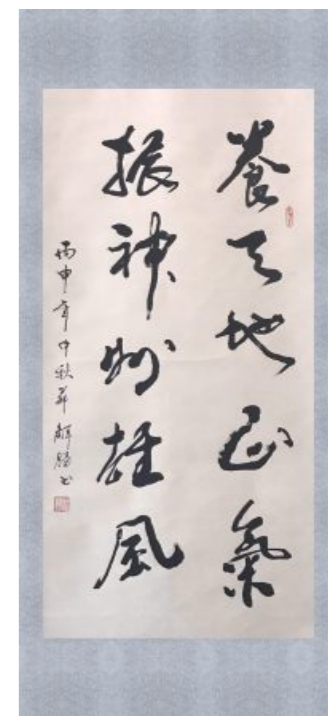 養天地正氣
振神州雄風
丙申年中秋